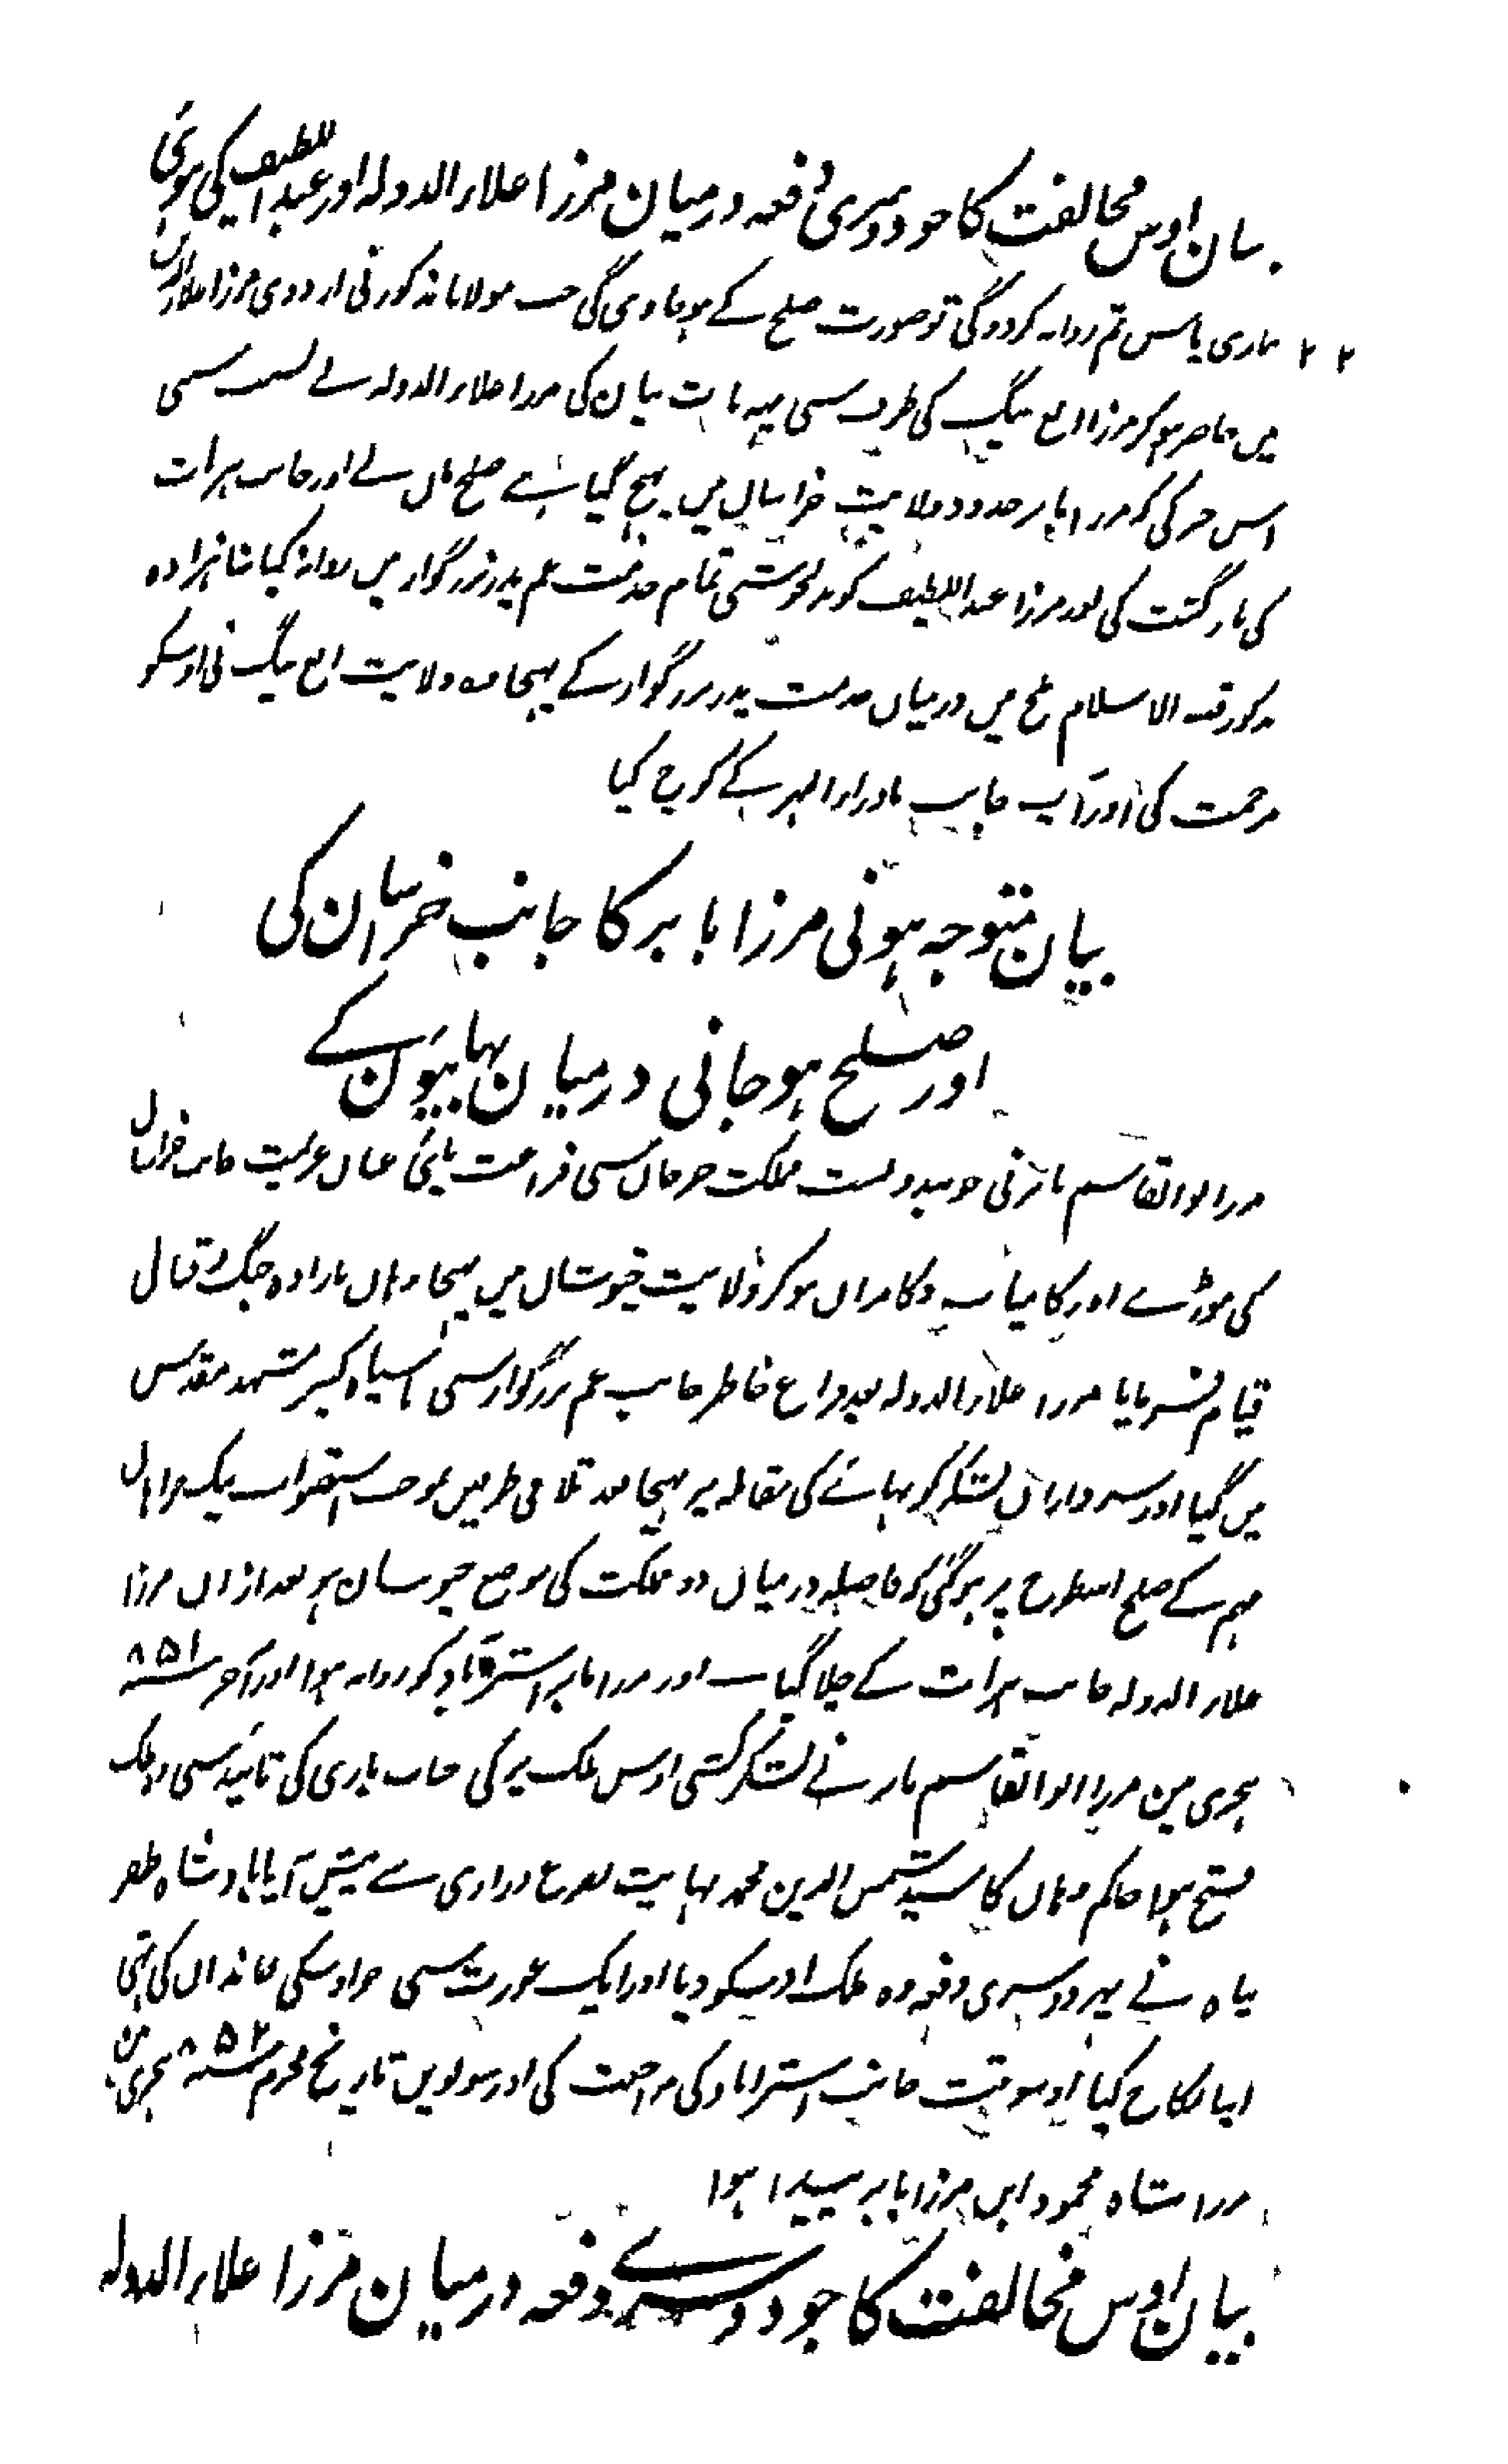 بیان اوس مخالفت کا جو دوسری دفعہ درمیان مرزا علاء الدولہ اور عبداللطیف کی ہوئی
۲۲ ہماری پاس تم روانہ کردوگی تو صورت صلح کے ہوجاوی گی جب مولانا مذکور نی اردوی مرزا علاء الدولہ
میں حاضر ہوکر مرزا الغ بیگ کی طرف سی یہہ بات بیان کی مرزا علاء الدولہ نے بسبب سنی
اس خبر کی کہ مرزا بابر حدود ولایت خراسان میں پہنچ گیا ہے صلح مان لے اور جانب ہرات
کی بازگشت کی اور مرزا عبداللطیف کو بدلخوشی تمام خدمت عم پدر بزرگوار میں روانہ کیا شاہزادہ
مذکور قبۃ الاسلام بلخ میں درمیان خدمت پدر بزرگوار کے پہنچا وہ ولایت الغ بیگ نی اوسکو
مرحمت کی اور آپ جانب ماوراء النہر کے کوچ کیا
بیان متوجہ ہونی مرزا بابر کا جانب خراسان کی
اور صلح ہوجانی درمیان بہائیون کے
مرزا ابوالقاسم بابر نی جو بندوبست مملکت جرجان سی فراغت پائی عنان عزیمت جانب خراسان
کی موڑے اور کامیاب و کامران ہوکر ولایت خبوشان میں پہنچا وہاں بارادہ جنگ و قتال
قیام فرمایا مرزا علاء الدولہ بعد فراغ خاطر جانب عم بزرگوار سی با سپاہ کثیر مشہد مقدس
میں گیا اور سرداران لشکر کو بہائے کی مقابلہ پر بہیجا بعد تلاقی طرفین بموجب استصواب نیک خواہان
مہم کے صلح اسطرح پر ہوگئی کہ فاصلہ درمیان دو مملکت کی موضع خبوشان ہو بعد ازاں مرزا
علاء الدولہ جانب ہرات کے چلا گیا اور مرزا بابر استرآباد کو روانہ ہوا اور آخر سنہ ۸۵۱
ہجری مین مرزا ابوالقاسم بابر نے لشکر کشی اوس ملک پر کی جناب باری کی تائید سی وہ ملک
فتح ہوا حاکم وہاں کا سید شمس الدین محمد نہایت تضرع و زاری سے پیش آیا بادشاہ ظفر
پناہ نے پہر دوسری دفعہ وہ ملک اوسیکو دیا اور ایک عورت سی جو اوسکی خاندان کی تھی
اپنا نکاح کیا اوسوقت جانب استراباد کی مراجعت کی اور سولویں تاریخ محرم سنہ ۸۵۲ ہجری مین
مرزا شاہ محمود ابن مرزا بابر پیدا ہوا
بیان اوس مخالفت کا جو دوسرے دفعہ درمیان مرزا علاء الدولہ